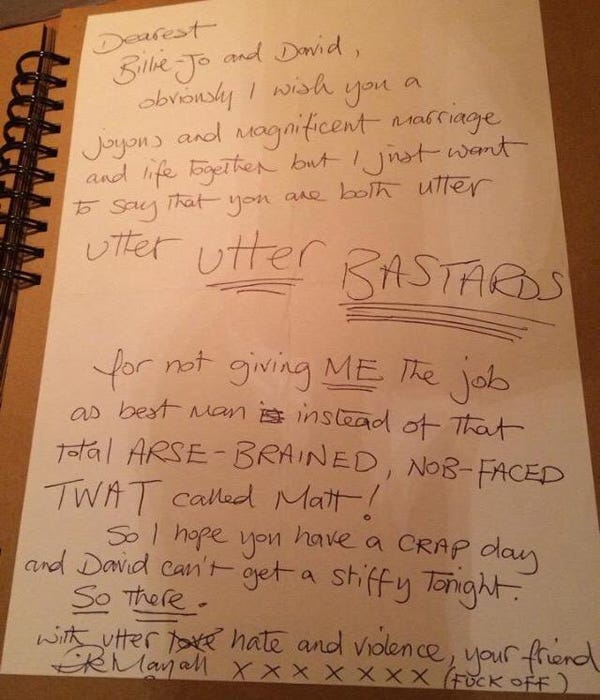 Dearest
Billie-Jo and David,
obviously I wish you a
joyous and magnificent marriage
and life together but I just want
to say that you are both utter
utter utter BASTARDS
for not giving ME the job
as best man instead of that
total ARSE-BRAINED, NOB-FACED
TWAT called Matt!
So I hope you have a CRAP day
and David can't get a stiffy tonight.
So there.
with utter love hate and violence, your friend
Rik Mayall X X X X X X X (FUCK OFF)